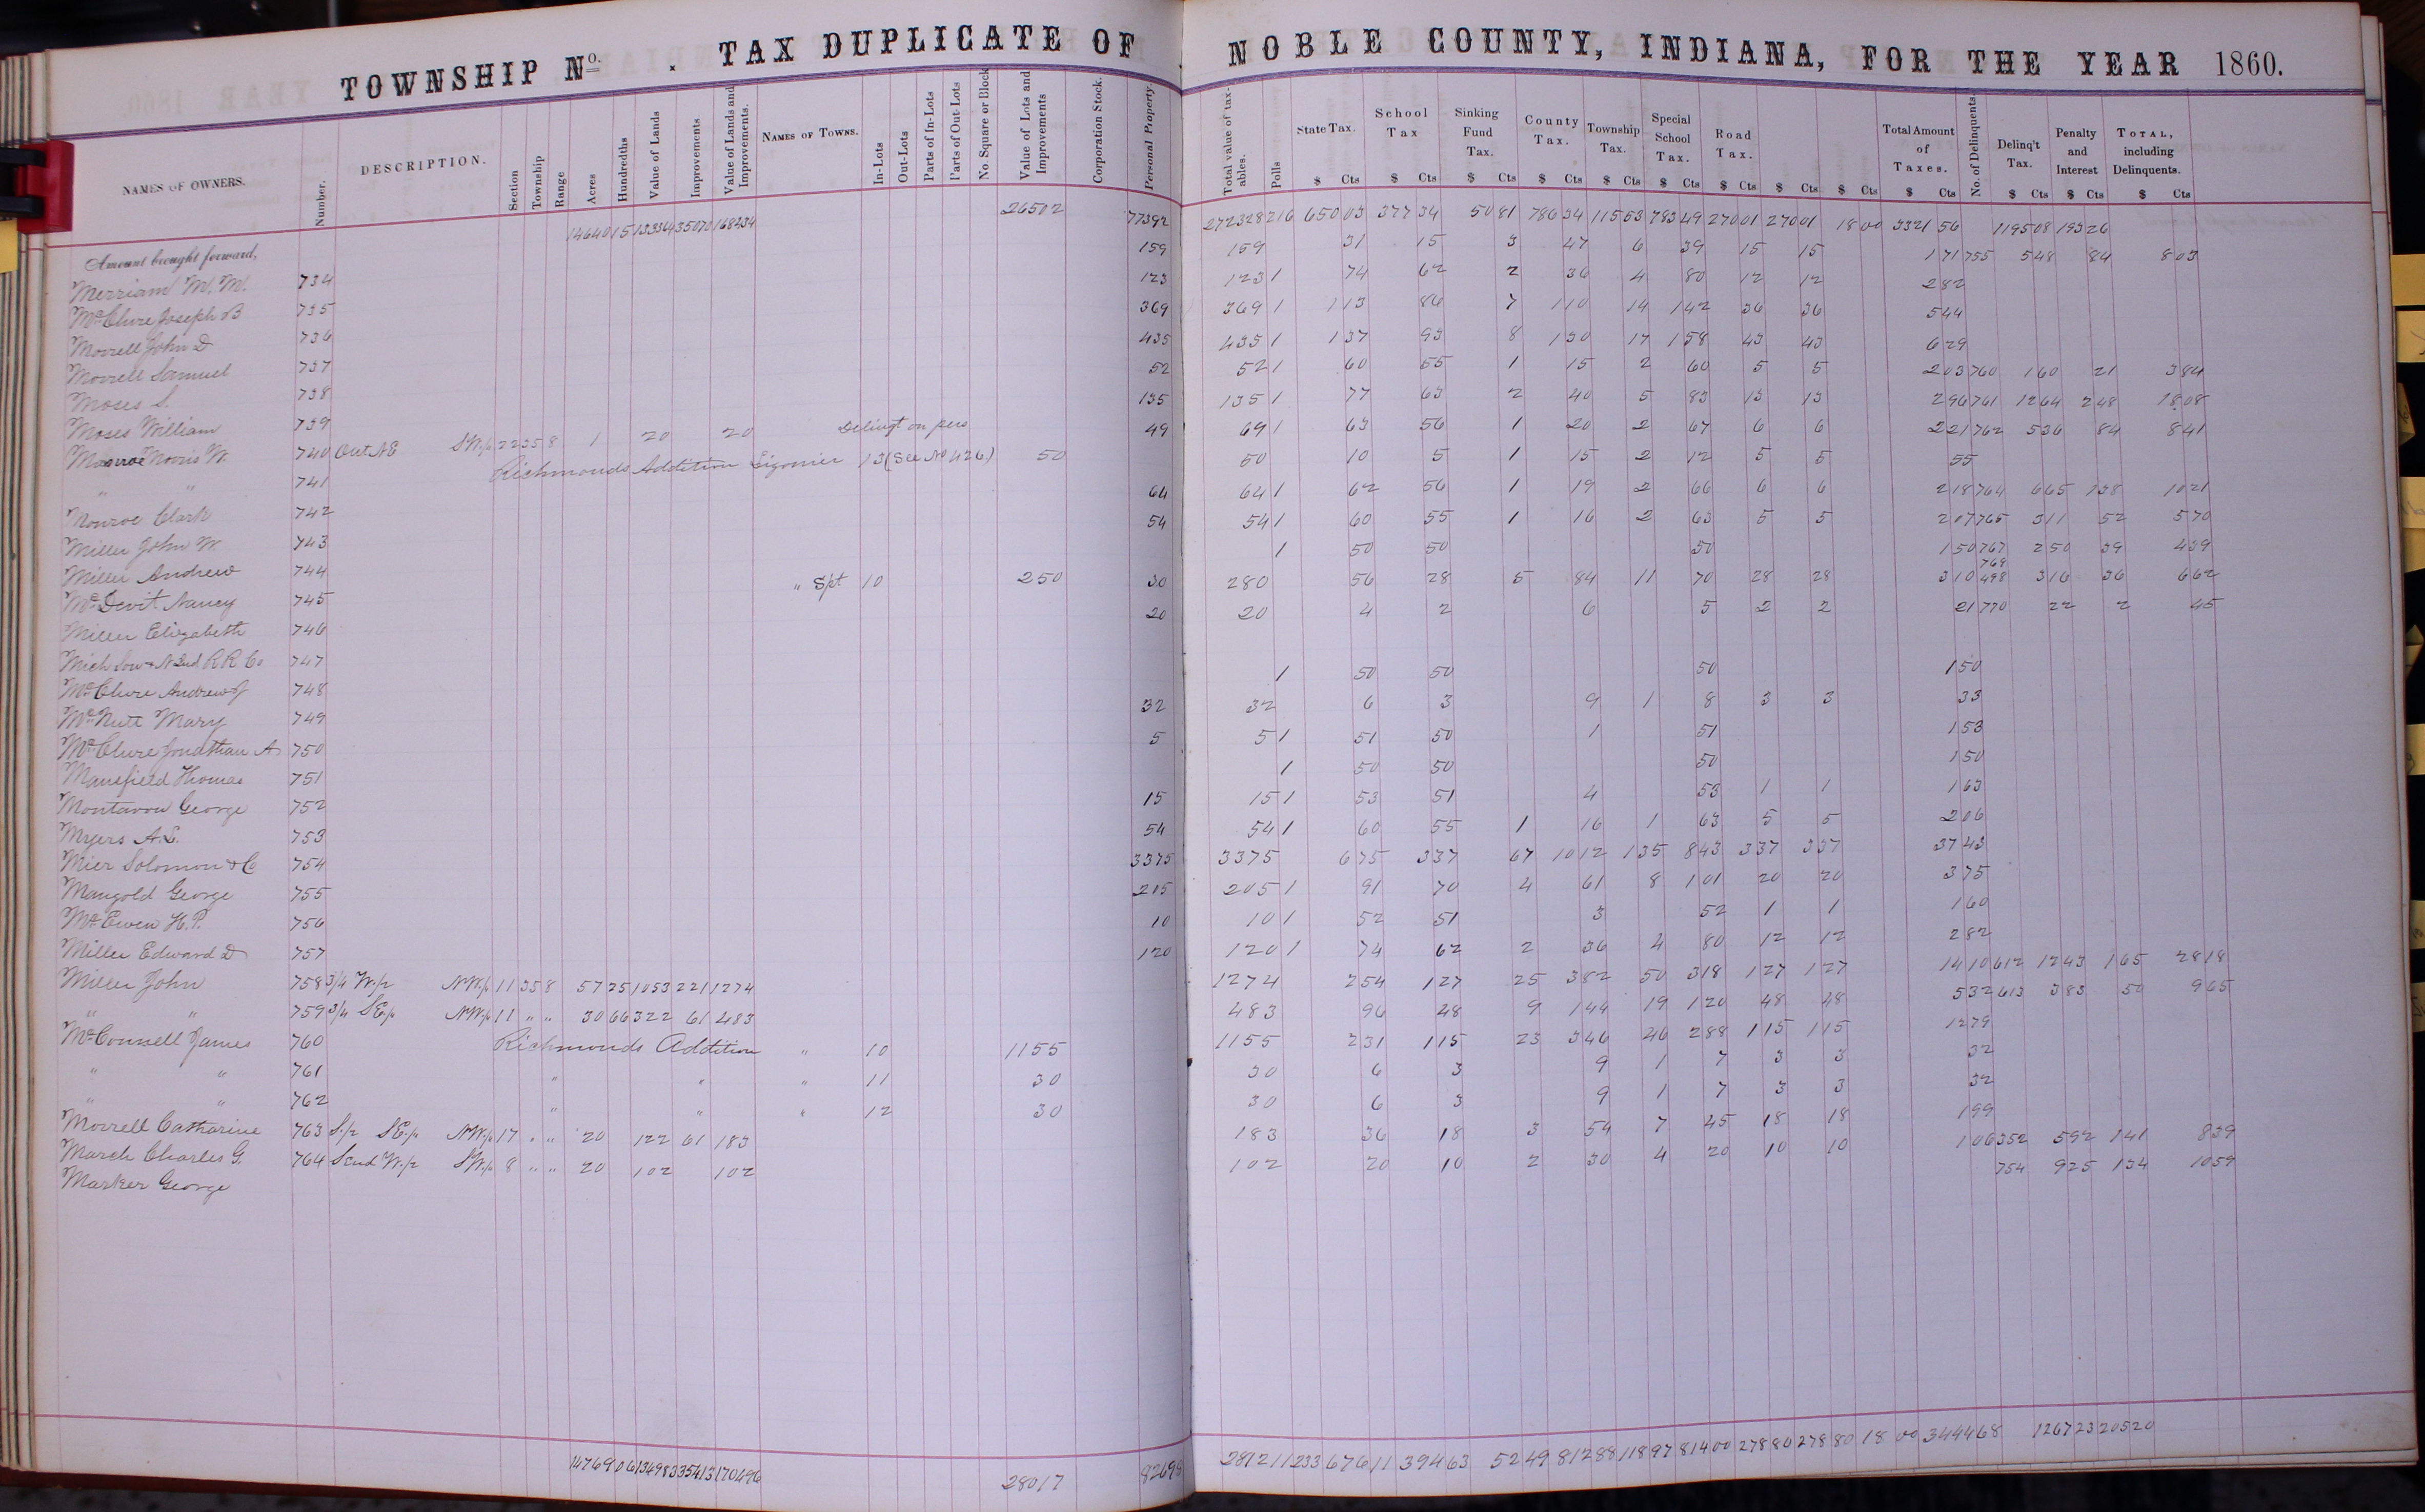 TOWNSHIP No. . TAX DUPLICATE OF NOBLE COUNTY, INDIANA, FOR THE YEAR 1860.
NAMES OF OWNERS. Number. DESCRIPTION. Section Township Range Acres Hundredths Value of Lands Improvements Value of Lands and Improvements. NAMES OF TOWNS. In-Lots Out-Lots Parts of In-Lots Parts of Out-Lots No Square or Block Value of Lots and Improvements Corporation Stock. Personal Property. Total value of taxables. Polls State Tax. School Tax Sinking Fund Tax. County Tax. Township Tax. Special School Tax. Road Tax. Total Amount of Taxes. No. of Delinquents Delinq't Tax. Penalty and Interest TOTAL, including Delinquents.
$ Cts $ Cts $ Cts $ Cts $ Cts $ Cts $ Cts $ Cts $ Cts $ Cts $ Cts $ Cts $ Cts
Amount brought forward, 14640 15 133364 35070 168434 26502 77392 272328 216 650 03 377 34 50 81 786 34 115 53 783 49 270 01 270 01 18 00 3321 56 1195 08 193 26
Merriam M. M. 734 159 159 31 15 3 47 6 39 15 15 1 71 755 5 48 84 8 03
McClure Joseph B 735 123 123 1 74 62 2 36 4 80 12 12 2 82
Morrell John D 736 369 369 1 1 13 86 7 1 10 14 1 42 36 36 5 44
Morrell Samuel 737 435 435 1 1 37 93 8 1 30 17 1 58 43 43 6 29
Moses S. 738 52 52 1 60 55 1 15 2 60 5 5 2 03 760 1 60 21 3 84
Moses William 739 135 135 1 77 63 2 40 5 83 13 13 2 96 761 12 64 2 48 18 08
Monroe Morris W. 740 Out NE SW/4 22 35 8 1 20 20 Delinqt on pers 49 69 1 63 56 1 20 2 67 6 6 2 21 762 5 36 84 8 41
" " 741 Richmonds Addition Ligonier 13 (See No 426) 50 50 10 5 1 15 2 12 5 5 55
Monroe Clark 742 64 64 1 62 56 1 19 2 66 6 6 2 18 764 6 65 1 38 10 21
Miller John W. 743 54 54 1 60 55 1 16 2 63 5 5 2 07 765 3 11 52 5 70
Miller Andrew 744 1 50 50 50 1 50 767 2 50 39 4 39
McDevit Nancy 745 " Spt 10 250 30 280 56 28 5 84 11 70 28 28 3 10 769 498 3 16 36 6 62
Miller Elizabeth 746 20 20 4 2 6 5 2 2 21 770 22 2 45
Mich Sou & N Ind R R Co 747
McClure Andrew J 748 1 50 50 50 1 50
McNutt Mary 749 32 32 6 3 9 1 8 3 3 33
McClure Jonathan A 750 5 5 1 51 50 1 51 1 53
Mansfield Thomas 751 1 50 50 50 1 50
Montavon George 752 15 15 1 53 51 4 53 1 1 1 63
Myers A.S. 753 54 54 1 60 55 1 16 1 63 5 5 2 06
Mier Solomon & C 754 3375 3375 6 75 3 37 67 10 12 1 35 8 43 3 37 3 37 37 43
Mangold George 755 205 205 1 91 70 4 61 8 1 01 20 20 3 75
McEwen H.P. 756 10 10 1 52 51 3 52 1 1 1 60
Miller Edward D 757 120 120 1 74 62 2 36 4 80 12 12 2 82
Miller John 758 3/4 W/2 NW/4 11 35 8 57 25 1053 221 1274 1274 2 54 1 27 25 3 82 50 3 18 1 27 1 27 14 10 612 12 43 1 65 28 18
" " 759 3/4 SE/4 NW/4 11 " " 30 66 322 61 483 483 96 48 9 1 44 19 1 20 48 48 5 32 613 3 83 50 9 65
McConnell James 760 Richmonds Addition " 10 1155 1155 2 31 1 15 23 3 46 46 2 88 1 15 1 15 12 79
" " 761 " " " 11 30 30 6 3 9 1 7 3 3 32
" " 762 " " " 12 30 30 6 3 9 1 7 3 3 32
Morrell Catharine 763 S/2 SE/4 NW/4 17 " " 20 122 61 183 183 36 18 3 54 7 45 18 18 1 99
March Charles G. 764 S end W/2 SW/4 8 " " 20 102 102 102 20 10 2 30 4 20 10 10 1 06 352 5 92 1 41 8 39
Marker George 754 9 25 1 34 10 59
14769 06 134983 35413 170496 28017 82698 281211 233 676 11 394 63 52 49 812 88 118 97 814 00 278 80 278 80 18 00 3444 68 1267 23 205 20